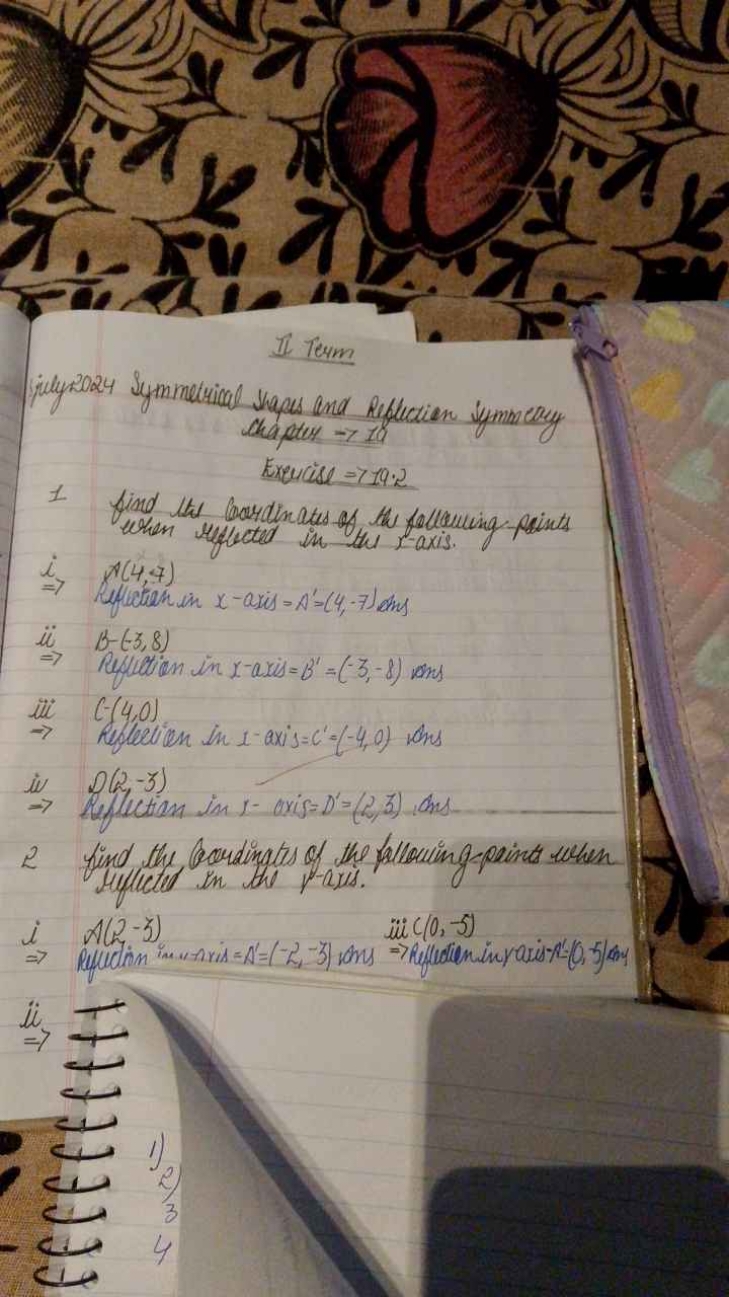 II Term
july2024 Symmetrical shapes and Reflection Symmetry
Chapter => 19
Exercise => 19.2
1 find the Coordinates of the following points
when reflected in the x-axis.
i A(4,-7)
=> Reflection in x-axis = A' = (4,-7) Ans
ii B-(-3,8)
=> Reflection in x-axis = B' = (-3,-8) Ans
iii C-(4,0)
=> Reflection in x-axis = C' = (-4,0) Ans
iv D(2,-3)
=> Reflection in x-axis = D' = (2,3) Ans
2 find the Coordinates of the following points when
reflected in the y-axis.
i A(2,-3) iii C(0,-5)
=> Reflection in y-axis = A' = (-2,-3) Ans => Reflection in y axis = A' = (0,-5) Ans
ii
=>
1)
2)
3
4